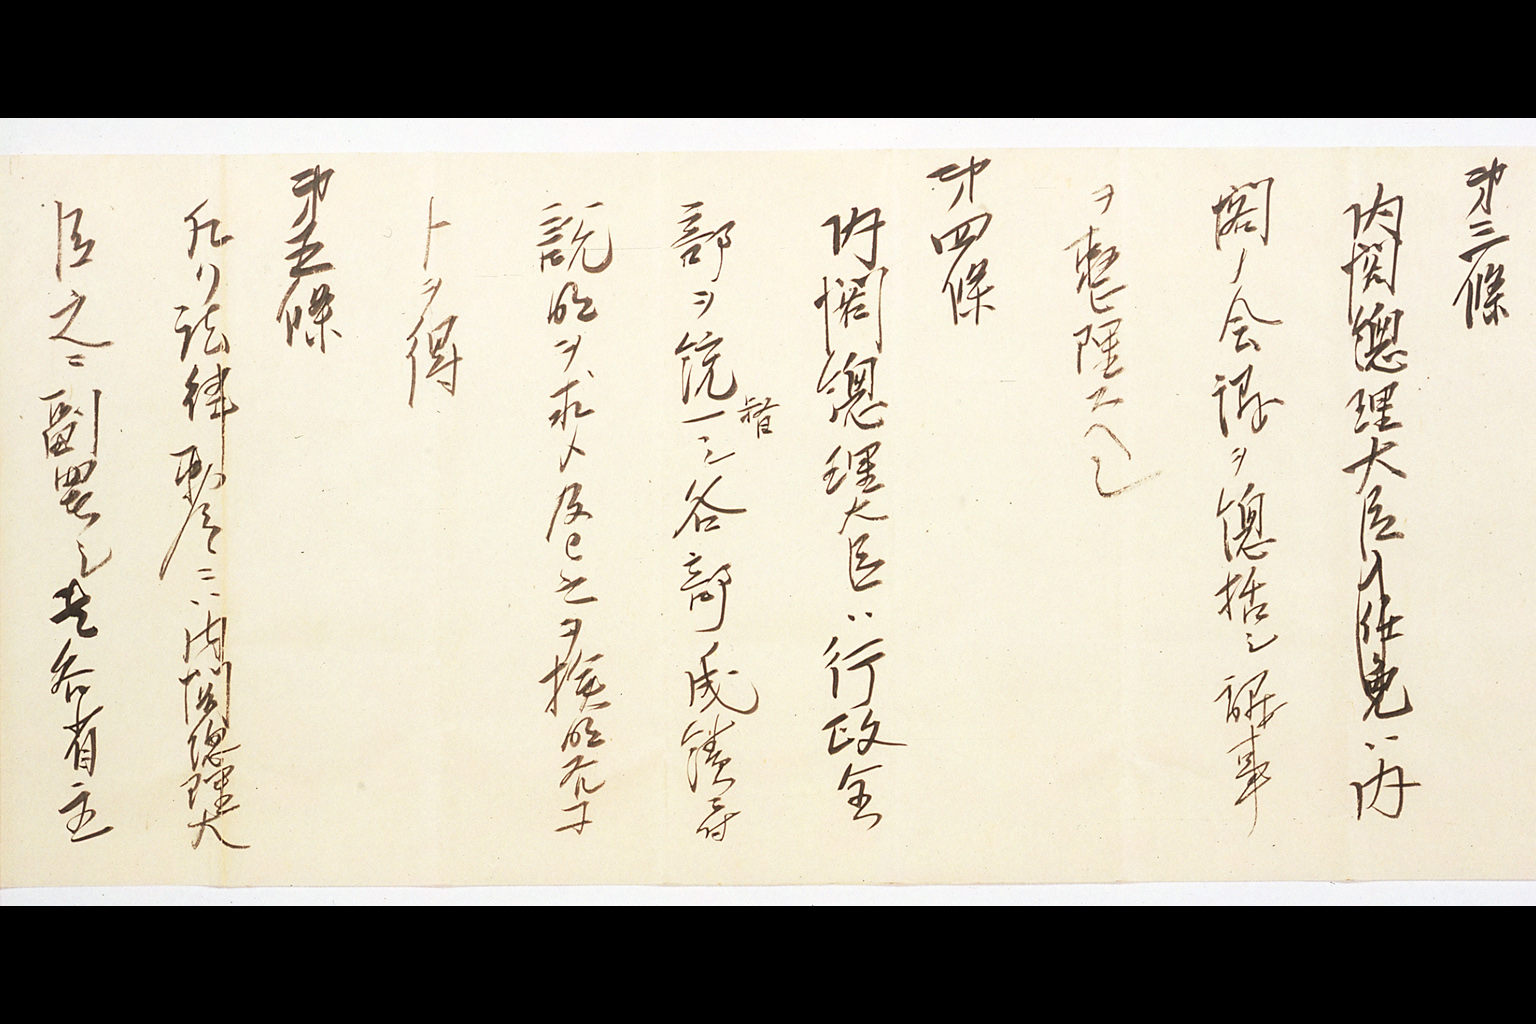 第三條
内閣總理大臣ノ任免ハ内
閣ノ会議ヲ總括シ議事
ヲ整理スヘシ
第四條
内閣總理大臣ハ行政全
部ヲ統一シ各部
督
説明ヲ求メ及之ヲ
トヲ得
第五條
凡ソ法律勅令ニハ内閣總理大
臣之ニ副署シ其各省主